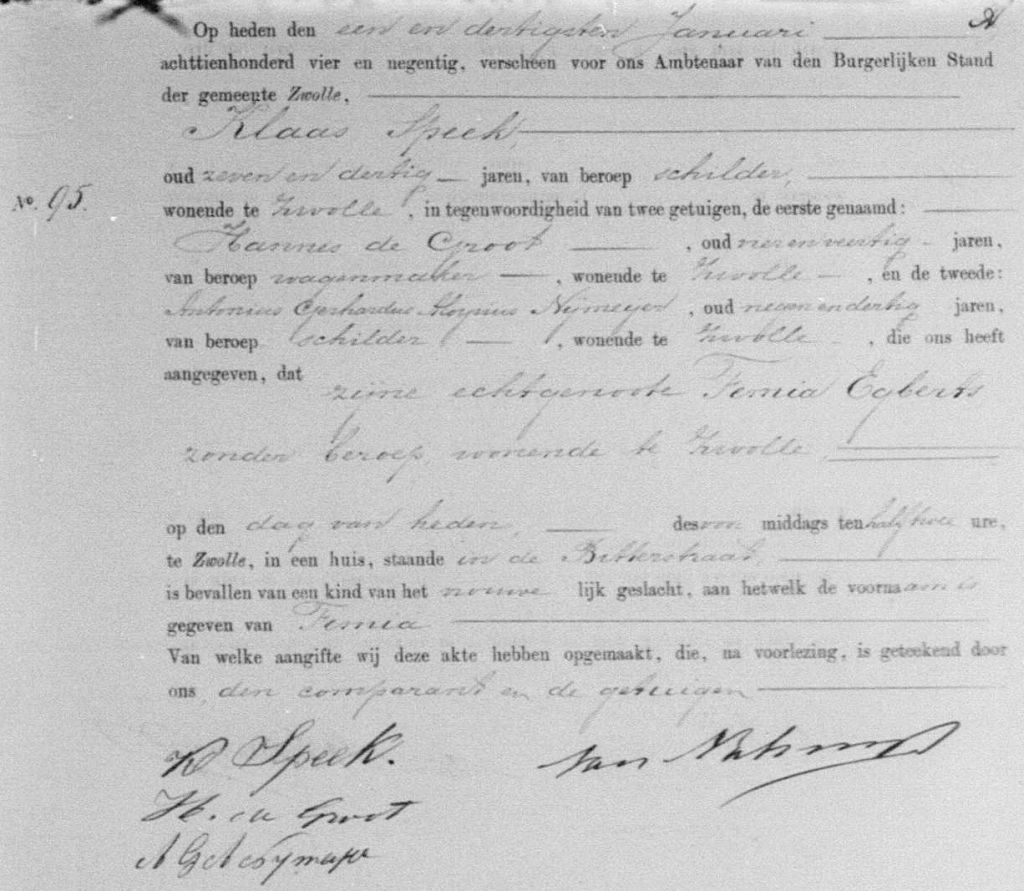 Op heden den een en dertigsten Januari
achttienhonderd vier en negentig, verscheen voor ons Ambtenaar van den Burgerlijken Stand
der gemeente Zwolle,
Klaas Speek,
oud zeven en dertig jaren, van beroep schilder,
No. 95. wonende te Zwolle, in tegenwoordigheid van twee getuigen, de eerste genaamd:
Hannes de Groot, oud vier en veertig jaren,
van beroep wagenmaker, wonende te Zwolle, en de tweede:
Antonius Gerhardus Aloysius Nijmeyer, oud en dertig jaren,
van beroep schilder, wonende te Zwolle, die ons heeft
aangegeven, dat zijne echtgenoote Femia Egberts
zonder beroep, wonende te Zwolle,
op den dag van heden, des voor middags ten half twee ure,
te Zwolle, in een huis, staande in de Bitterstraat,
is bevallen van een kind van het vrouwe lijk geslacht, aan hetwelk de voornaam is
gegeven van Femia
Van welke aangifte wij deze akte hebben opgemaakt, die, na voorlezing, is geteekend door
ons, den comparant en de getuigen
K Speek.
H. de Groot